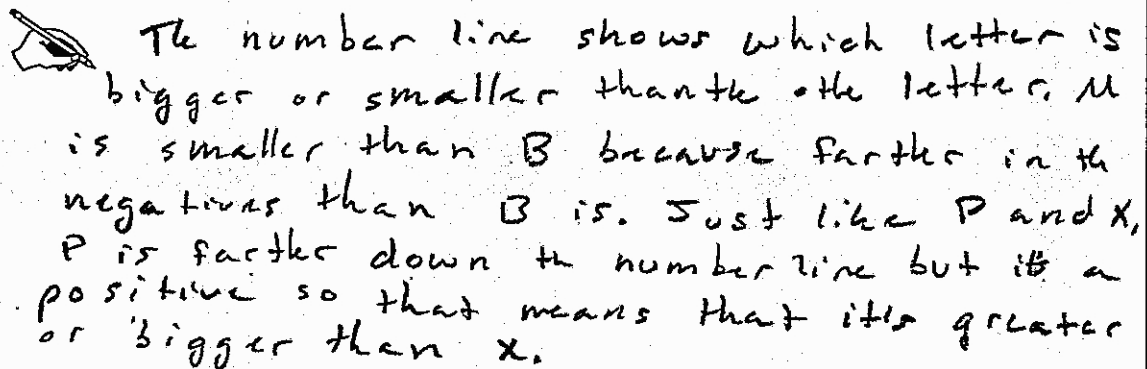 The number line shows which letter is
bigger or smaller than the othe letter. M
is smaller than B because farther in th
negatives than B is. Just like P and X,
P is farther down th number line but it's a
positive so that means that it's greater
or bigger than x.